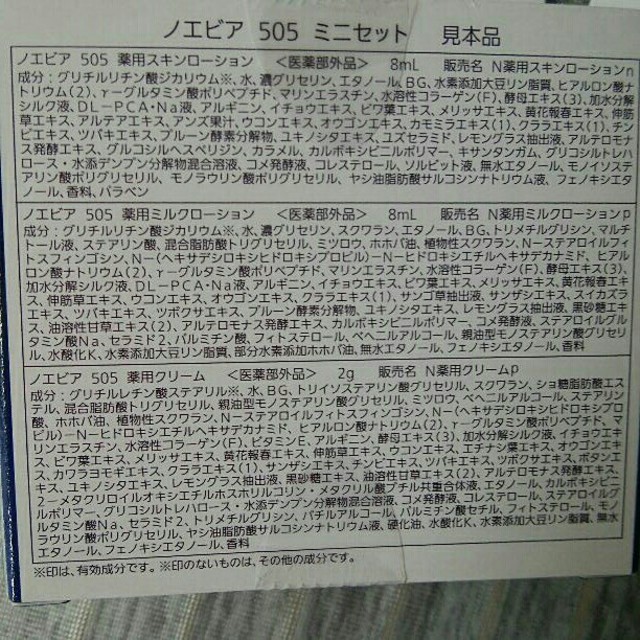 ノエビア 505 ミニセット 見本品
ノエビア 505 薬用スキンローション <医薬部外品> 8mL 販売名 N薬用スキンローションn
成分:グリチルリチン酸ジカリウム※、水、濃グリセリン、エタノール、BG、水素添加大豆リン脂質、ヒアルロン酸ナ
トリウム(2)、γーグルタミン酸ポリペプチド、マリンエラスチン、水溶性コラーゲン(F)、酵母エキス(3)、加水分解
シルク液、DL－PCA・Na液、アルギニン、イチョウエキス、ビワ葉エキス、メリッサエキス、黄花報春エキス、伸筋
草エキス、アルテアエキス、アンズ果汁、ウコンエキス、オウゴンエキス、カモミラエキス(1)、クララエキス(1)、チン
ピエキス、ツバキエキス、プルーン酵素分解物、ユキノシタエキス、ユズセラミド、レモングラス抽出液、アルテロモナ
ス発酵エキス、グルコシルヘスペリジン、カラメル、カルボキシビニルポリマー、キサンタンガム、グリコシルトレハ
ロース・水添デンプン分解物混合溶液、コメ発酵液、コレステロール、ソルビット液、無水エタノール、モノイソステ
アリン酸ポリグリセリル、モノラウリン酸ポリグリセリル、ヤシ油脂肪酸サルコシンナトリウム液、フェノキシエタ
ノール、香料、パラベン
ノエビア 505 薬用ミルクローション <医薬部外品> 8mL 販売名 N薬用ミルクローションp
成分:グリチルリチン酸ジカリウム※、水、濃グリセリン、スクワラン、エタノール、BG、トリメチルグリシン、マルチ
トール液、ステアリン酸、混合脂肪酸トリグリセリル、ミツロウ、ホホバ油、植物性スクワラン、Nーステアロイルフィ
トスフィンゴシン、N－(ヘキサデシロキシヒドロキシプロピル)－N－ヒドロキシエチルヘキサデカナミド、ヒアル
ロン酸ナトリウム(2)、γーグルタミン酸ポリペプチド、マリンエラスチン、水溶性コラーゲン(F)、酵母エキス(3)、
加水分解シルク液、DL－PCA・Na液、アルギニン、イチョウエキス、ビワ葉エキス、メリッサエキス、黄花報春エキ
ス、伸筋草エキス、ウコンエキス、オウゴンエキス、クララエキス(1)、サンゴ草抽出液、サンザシエキス、スイカズラ
エキス、ツバキエキス、ツボクサエキス、プルーン酵素分解物、ユキノシタエキス、レモングラス抽出液、黒砂糖エキ
ス、油溶性甘草エキス(2)、アルテロモナス発酵エキス、カルボキシビニルポリマー、コメ発酵液、ステアロイルグル
タミン酸Na、セラミド2、パルミチン酸、フィトステロール、ベヘニルアルコール、親油型モノステアリン酸グリセリ
ル、水酸化K、水素添加大豆リン脂質、部分水素添加ホホバ油、無水エタノール、フェノキシエタノール、香料
ノエビア 505 薬用クリーム <医薬部外品> 2g 販売名 N薬用クリームp
成分:グリチルレチン酸ステアリル※、水、BG、トリイソステアリン酸グリセリル、スクワラン、ショ糖脂肪酸エス
テル、混合脂肪酸トリグリセリル、親油型モノステアリン酸グリセリル、ミツロウ、ベヘニルアルコール、ステアリン
酸、ホホバ油、植物性スクワラン、Nーステアロイルフィトスフィンゴシン、N－(ヘキサデシロキシヒドロキシプロ
ピル)－N－ヒドロキシエチルヘキサデカナミド、ヒアルロン酸ナトリウム(2)、γーグルタミン酸ポリペプチド、マ
リンエラスチン、水溶性コラーゲン(F)、ビタミンE、アルギニン、酵母エキス(3)、加水分解シルク液、イチョウエキ
ス、ビワ葉エキス、メリッサエキス、黄花報春エキス、伸筋草エキス、ウコンエキス、エチナシ葉エキス、オウゴンエキ
ス、カワラヨモギエキス、クララエキス(1)、サンザシエキス、チンピエキス、ツバキエキス、ツボクサエキス、ボタンエ
キス、ユキノシタエキス、レモングラス抽出液、黒砂糖エキス、油溶性甘草エキス(2)、アルテロモナス発酵エキス、
2－メタクリロイルオキシエチルホスホリルコリン・メタクリル酸ブチル共重合体液、エタノール、カルボキシビニ
ルポリマー、グリコシルトレハロース・水添デンプン分解物混合溶液、コメ発酵液、コレステロール、ステアロイルグ
ルタミン酸Na、セラミド2、トリメチルグリシン、バチルアルコール、パルミチン酸セチル、フィトステロール、モノ
ラウリン酸ポリグリセリル、ヤシ油脂肪酸サルコシンナトリウム液、硬化油、水酸化K、水素添加大豆リン脂質、無水
エタノール、フェノキシエタノール、香料
※印は、有効成分です。※印のないものは、その他の成分です。